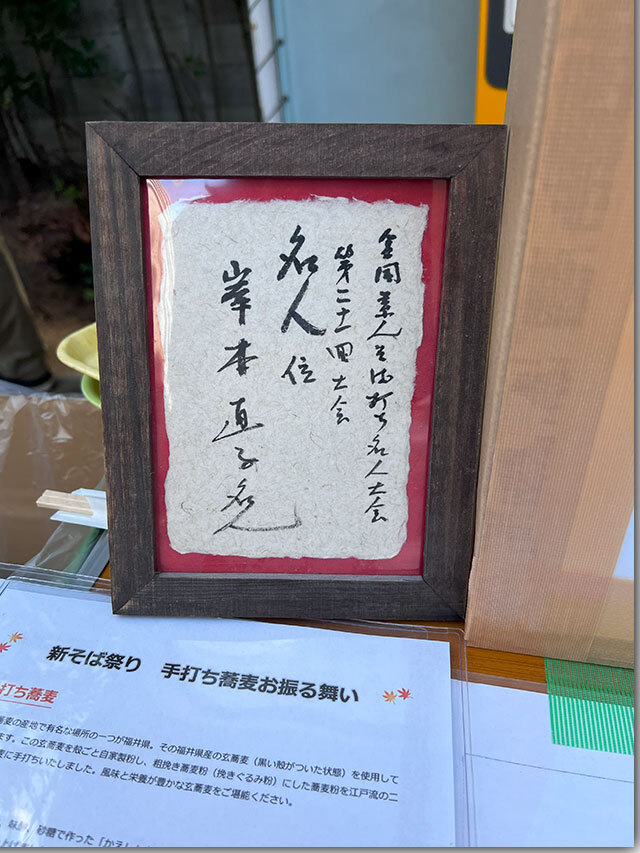 全国素人そば打ち名人大会
第二十一回大会
名人位
岸本直子名人
新そば祭り 手打ち蕎麦お振る舞い
打ち蕎麦
蕎麦の産地で有名な場所の一つが福井県。その福井県産の玄蕎麦（黒い殻がついた状態）を使用して
ます。この玄蕎麦を殻ごと自家製粉し、粗挽き蕎麦粉（挽きぐるみ粉）にした蕎麦粉を江戸流の二
麦に手打ちいたしました。風味と栄養が豊かな玄蕎麦をご堪能ください。
砂糖で作った「かえし